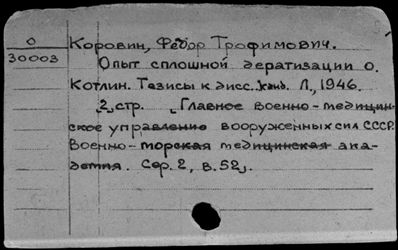 0
30003
Коровин, Федор Трофимович.
Опыт сплошной дератизации о.
Котлин. Тезисы к дисс. канд. Л., 1946.
2 стр. Главное военно-медицин-
ское управление вооруженных сил СССР.
Военно-морская медицинская ака-
демия. Сер. 2, в. 52.